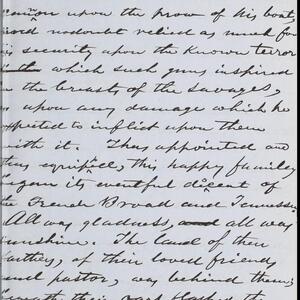 upon the prow of his boat,
nodoubt relied as much for
his security upon the known terror
which such guns inspired
in the breasts of the savages,
as upon any damage which he
expected to inflict upon them
with it. Thus appointed and
thus equiped, this happy family
began its eventful descent of
the French Broad and Tennessee
All was gladness, and all was
sunshine. The land of their
fathers, of their loved friends
and pastor, was behind them;